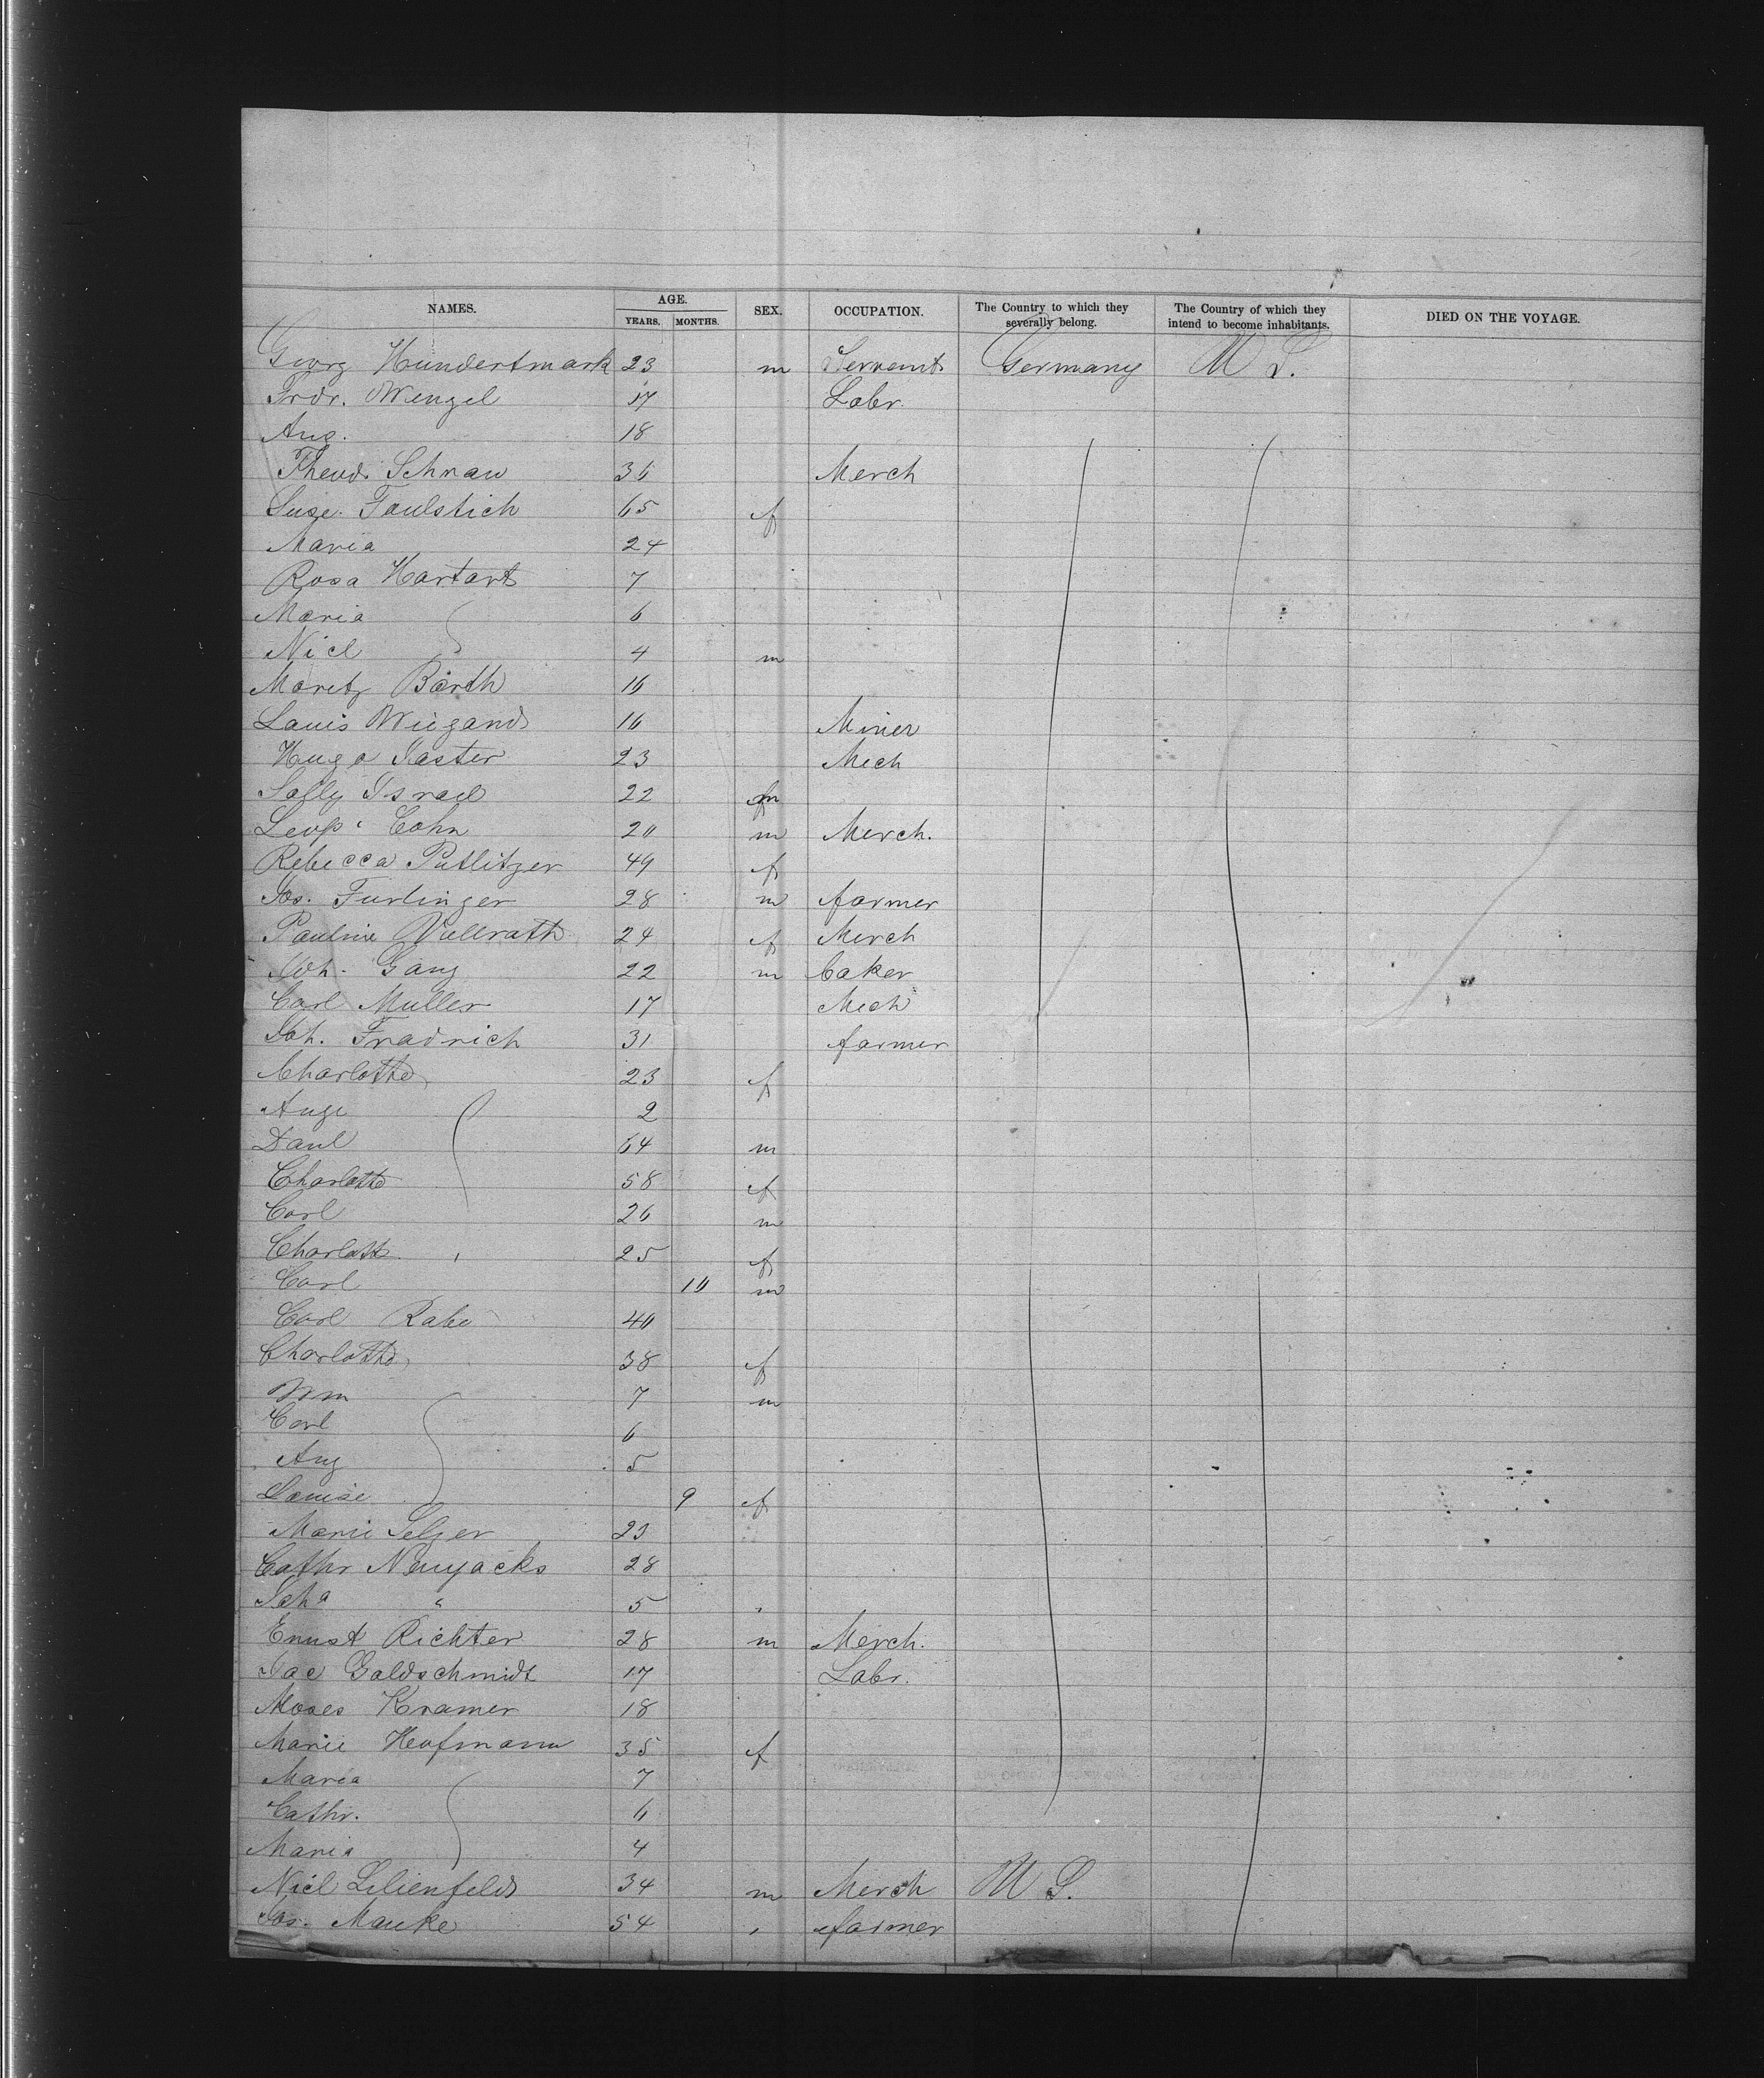 NAMES. AGE. SEX. OCCUPATION. The Country to which they severally belong. The Country of which they intend to become inhabitants. DIED ON THE VOYAGE.
YEARS. MONTHS.
Georg Hundertmark 23 m Servant Germany U S.
Frdr. Wenzel 17 Labr.
Aug. 18
Theod. Schnau 36 Merch
Suse. Faulstich 65 f
Maria 24
Rosa Hartart 7
Maria 6
Nicl 4 m
Moritz Barth 16
Louis Wiegand 16 Miner
Hugo Kaster 23 Mech
Sally Israel 22
Leop. Cohn 20 m Merch.
Rebecca Putlitzer 49 f
Jos. Furlinger 28 m farmer
Pauline Vollrath 24 f Merch
Joh. Gang 22 m baker
Carl Muller 17 Mech
Joh. Fradrich 31 farmer
Charlotte 23 f
Auge 2
Daul 64 m
Charlotte 58 f
Carl 26 m
Charlott 25 f
Carl 10 m
Carl Rabe 40
Charlotte 38 f
Wm 7 m
Carl 6
Aug 5
Louise 9 f
Marie Selzer 23
Cathr Neuyacks 28
Joha " 5
Ernst Richter 28 m Merch.
Jac Goldschmidt 17 Labr.
Moses Kramer 18
Marie Hofmann 35 f
Maria 7
Cathr. 6
Maria 4
Nicl Lilienfeld 34 m Merch U S.
Jos. Mauke 54 farmer